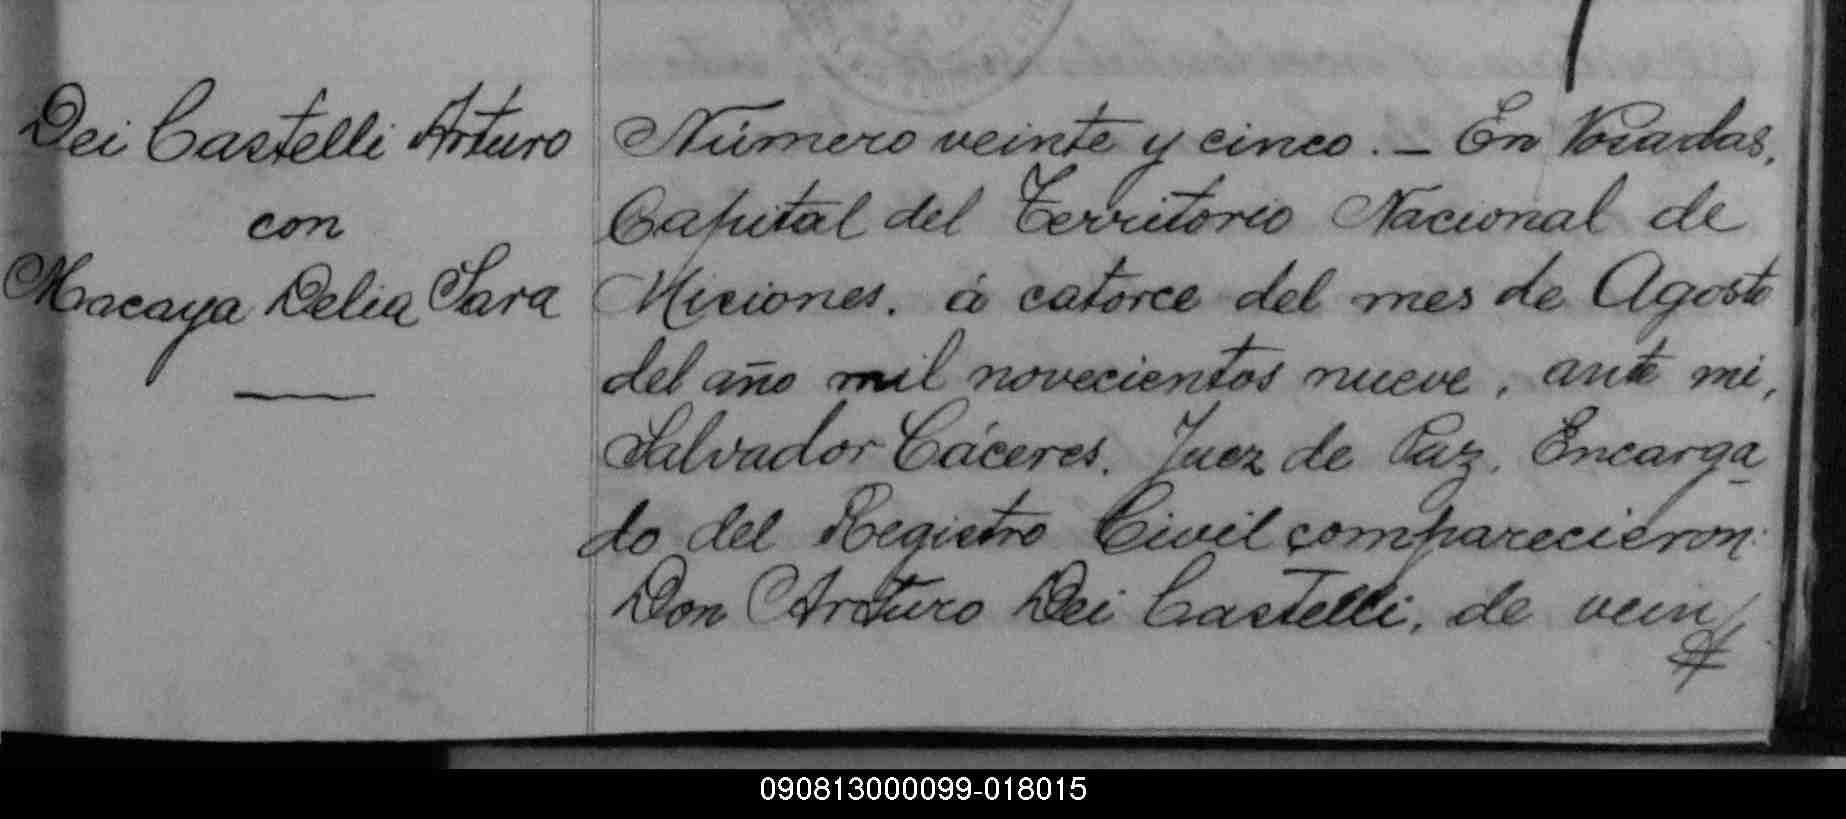 Dei Castelli Arturo
con
Macaya Delia Sara
Número veinte y cinco. — En Posadas,
Capital del Territorio Nacional de
Misiones. á catorce del mes de Agosto
del año mil novecientos nueve, ante mi,
Salvador Cáceres. Juez de Paz, Encarga
do del Registro Civil comparecieron:
Don Arturo Dei Castelli, de vein
090813000099-018015